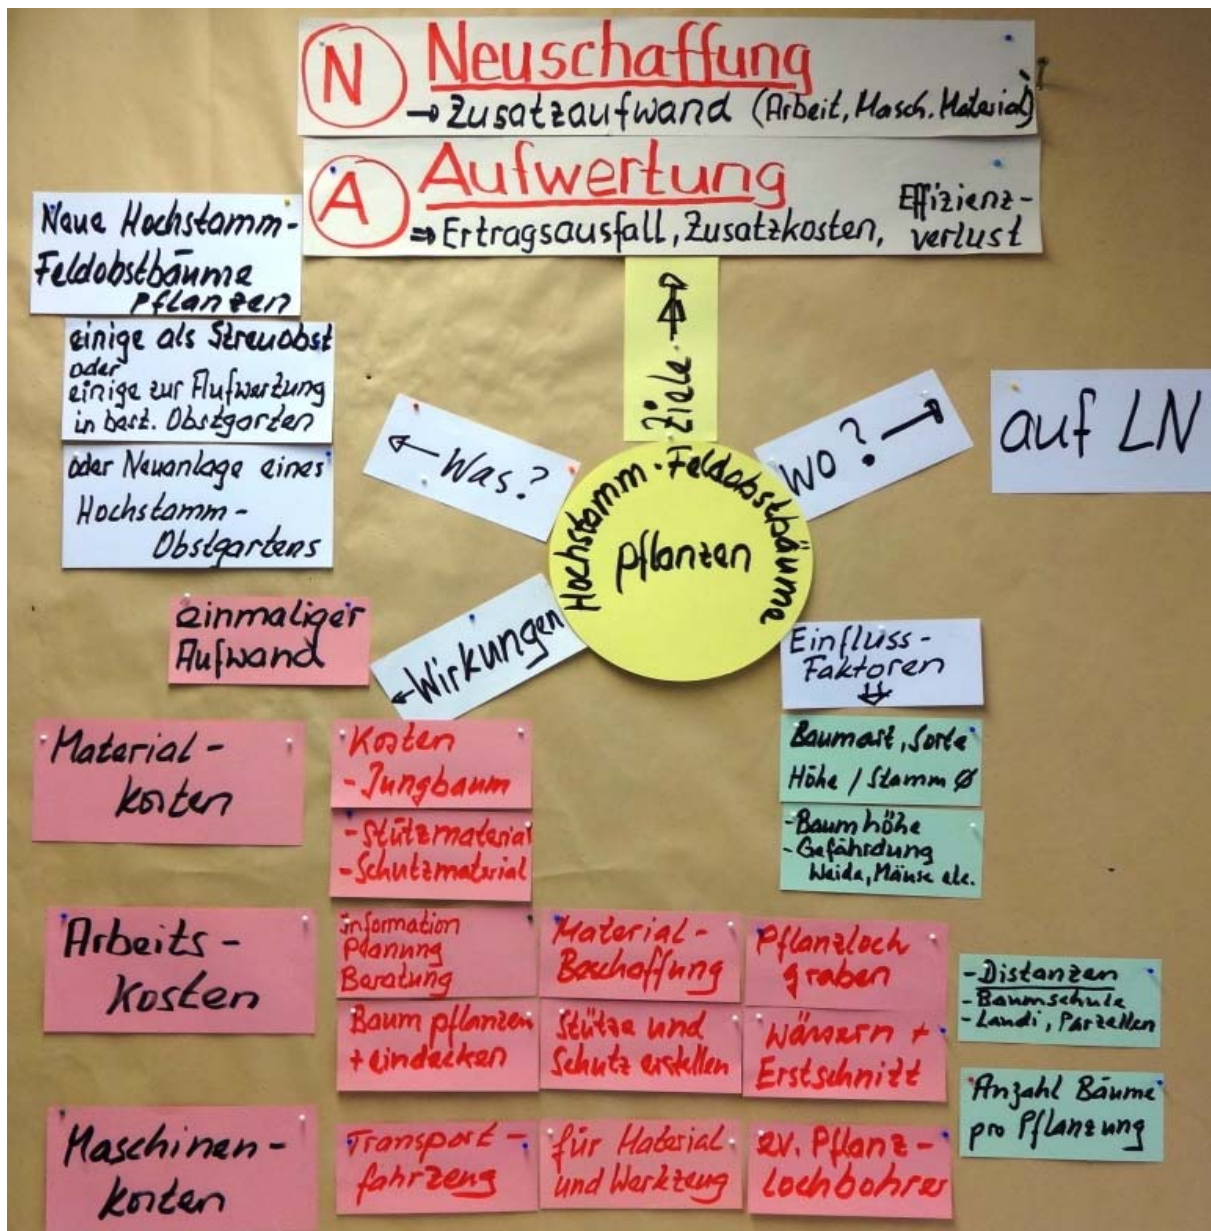 N Neuschaffung
→ Zusatzaufwand (Arbeit, Masch. Material)
A Aufwertung
⇒ Ertragsausfall, Zusatzkosten, Effizienz-
verlust
Neue Hochstamm-
Feldobstbäume
pflanzen
einige als Streuobst
oder
einige zur Aufwertung
in best. Obstgarten
oder Neuanlage eines
Hochstamm-
Obstgartens
Ziele
← Was?
Wo? →
auf LN
Hochstamm-Feldobstbäume
pflanzen
← Wirkungen
einmaliger
Aufwand
Einfluss-
Faktoren
Material-
kosten
Kosten
- Jungbaum
- Stützmaterial
- Schutzmaterial
Baumart, Sorte
Höhe / Stamm Ø
- Baumhöhe
- Gefährdung
Weide, Mäuse etc.
Arbeits-
kosten
Information
Planung
Beratung
Material-
Beschaffung
Pflanzloch
graben
Baum pflanzen
+ eindecken
Stütze und
Schutz erstellen
Wässern +
Erstschnitt
- Distanzen
- Baumschule
- Landi, Parzellen
Anzahl Bäume
pro Pflanzung
Maschinen-
kosten
Transport-
fahrzeug
für Material
und Werkzeug
ev. Pflanz-
lochbohrer